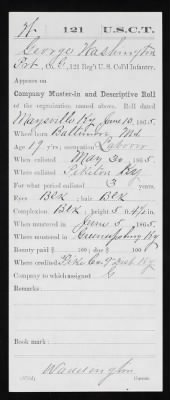 W. 121 U.S.C.T.
George Washington
Pvt., Co. G, 121 Reg't U. S. Col'd Infantry.
Appears on
Company Muster-in and Descriptive Roll
of the organization named above. Roll dated
Maysville Ky June 10, 1865
Where born Baltimore, Md.
Age 19 y'rs; occupation Laborer
When enlisted May 30, 1865
Where enlisted Piketon Ky
For what period enlisted 3 years.
Eyes Blk; hair Blk
Complexion Blk; height 5 ft. 4½ in.
When mustered in June 5, 1865
Where mustered in Ky
Bounty paid $ 100; due $ 100
Where credited Pike Co. 9 Sub. Ky
Company to which assigned G
Remarks:
Book mark:
Waddington
Copyist.